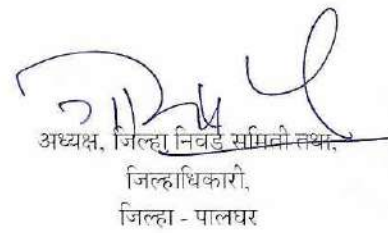 अध्यक्ष, जिल्हा निवड समिती तथा,
जिल्हाधिकारी,
जिल्हा - पालघर